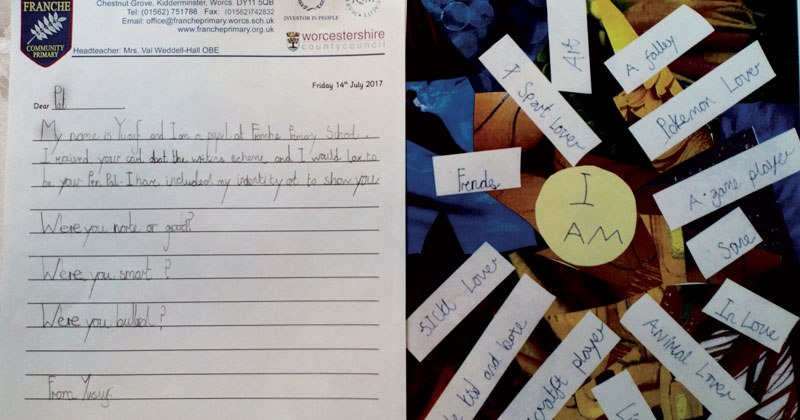 FRANCHE
COMMUNITY
PRIMARY
Chestnut Grove, Kidderminster, Worcs. DY11 5QB
Tel: (01562) 751788 Fax: (01562)742832
Email: office@francheprimary.worcs.sch.uk
www.francheprimary.org.uk
Headteacher: Mrs. Val Weddell-Hall OBE
INVESTOR IN PEOPLE
worcestershire
countycouncil
Friday 14th July 2017
Dear Pal
My name is Yusif and I am a pupil at Franche Primary School.
I recived your card about the writing scheme and I would love to
be your Pen Pal. I have included my identity art to show you.
Were you norte or good?
Were you smart?
Were you bullied?
From Yusif
I
AM
Art
A falley
I Sport Lover
Pokemon Lover
Frends
A game player
Sane
SICK Lover
In Love
Animal Lover
kid and
player